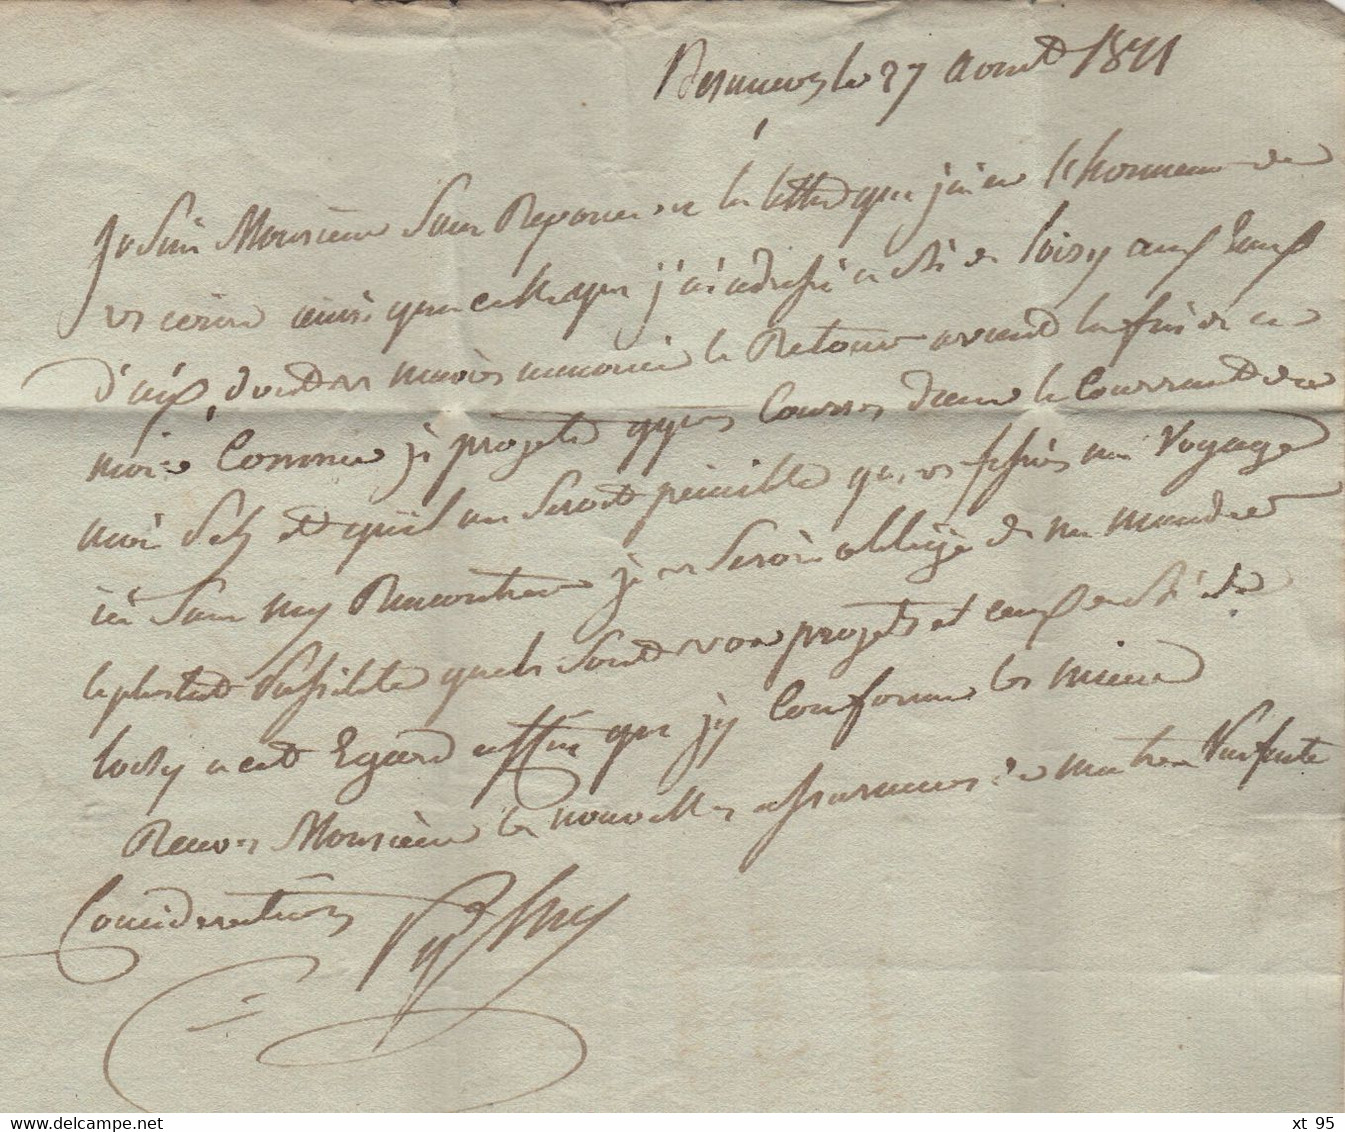 le 27 Aout 1821
Je Suis Monsieur Sans Reponse a la lettre que j'ai eu l'honneur de
vs ecrire ainsi que celle que j'ai adressé a Mr de Loisy aux Eaux
d'aix, dont vs m'avés annoncé le Retour avant la fin de ce
mois Comme je projette qques Courses dans le Courrant de
mois et qu'il me Seroit penible que vs fissiés un Voyage
ici Sans my Rencontrer je vs Serois obligé de me mander
le plustot possible quels Sont vos projets et ceux de Mr de
Loisy a cet Egard affin que j'y Conforme les miens
Recevés Monsieur les nouvelles assurances de ma tres Parfaite
Consideration
delcampe.net
xt 95